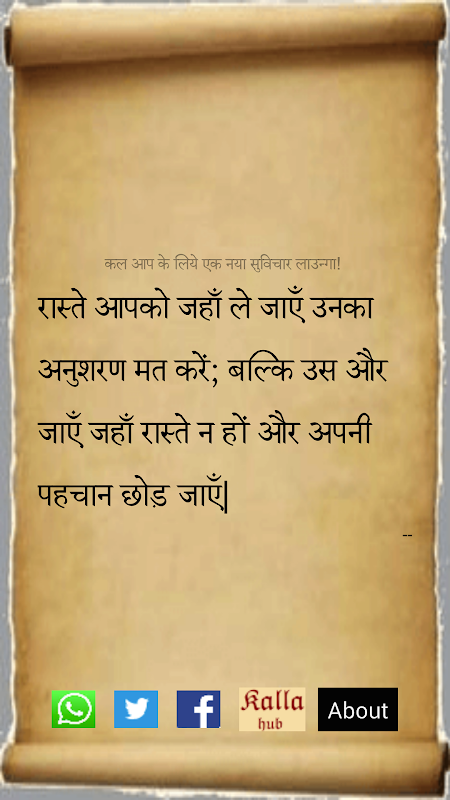 कल आप के लिये एक नया सुविचार लाउन्गा!
रास्ते आपको जहाँ ले जाएँ उनका
अनुशरण मत करें; बल्कि उस और
जाएँ जहाँ रास्ते न हों और अपनी
पहचान छोड़ जाएँ|
--
Kalla
hub
About